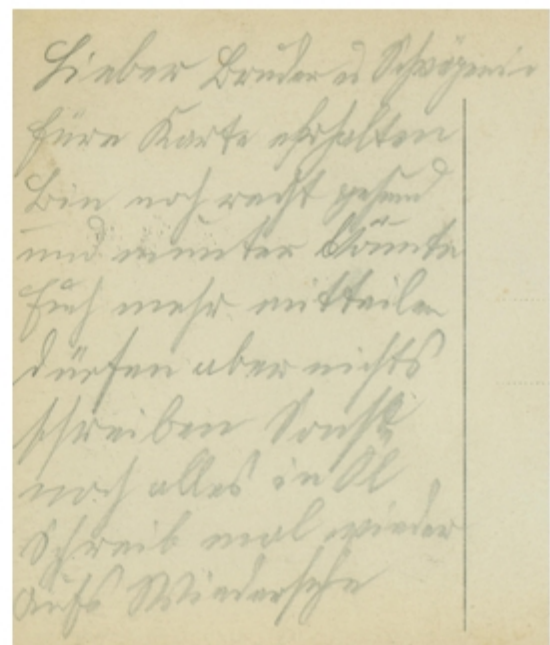 Lieber Bruder u Schwägerin
Eure Karte erhalten
Bin noch recht gesund
und munter Könnte
Euch mehr mitteilen
dürfen aber nichts
schreiben Sonst
noch alles in Ol
Schreib mal wieder
Aufs Wiedersehn